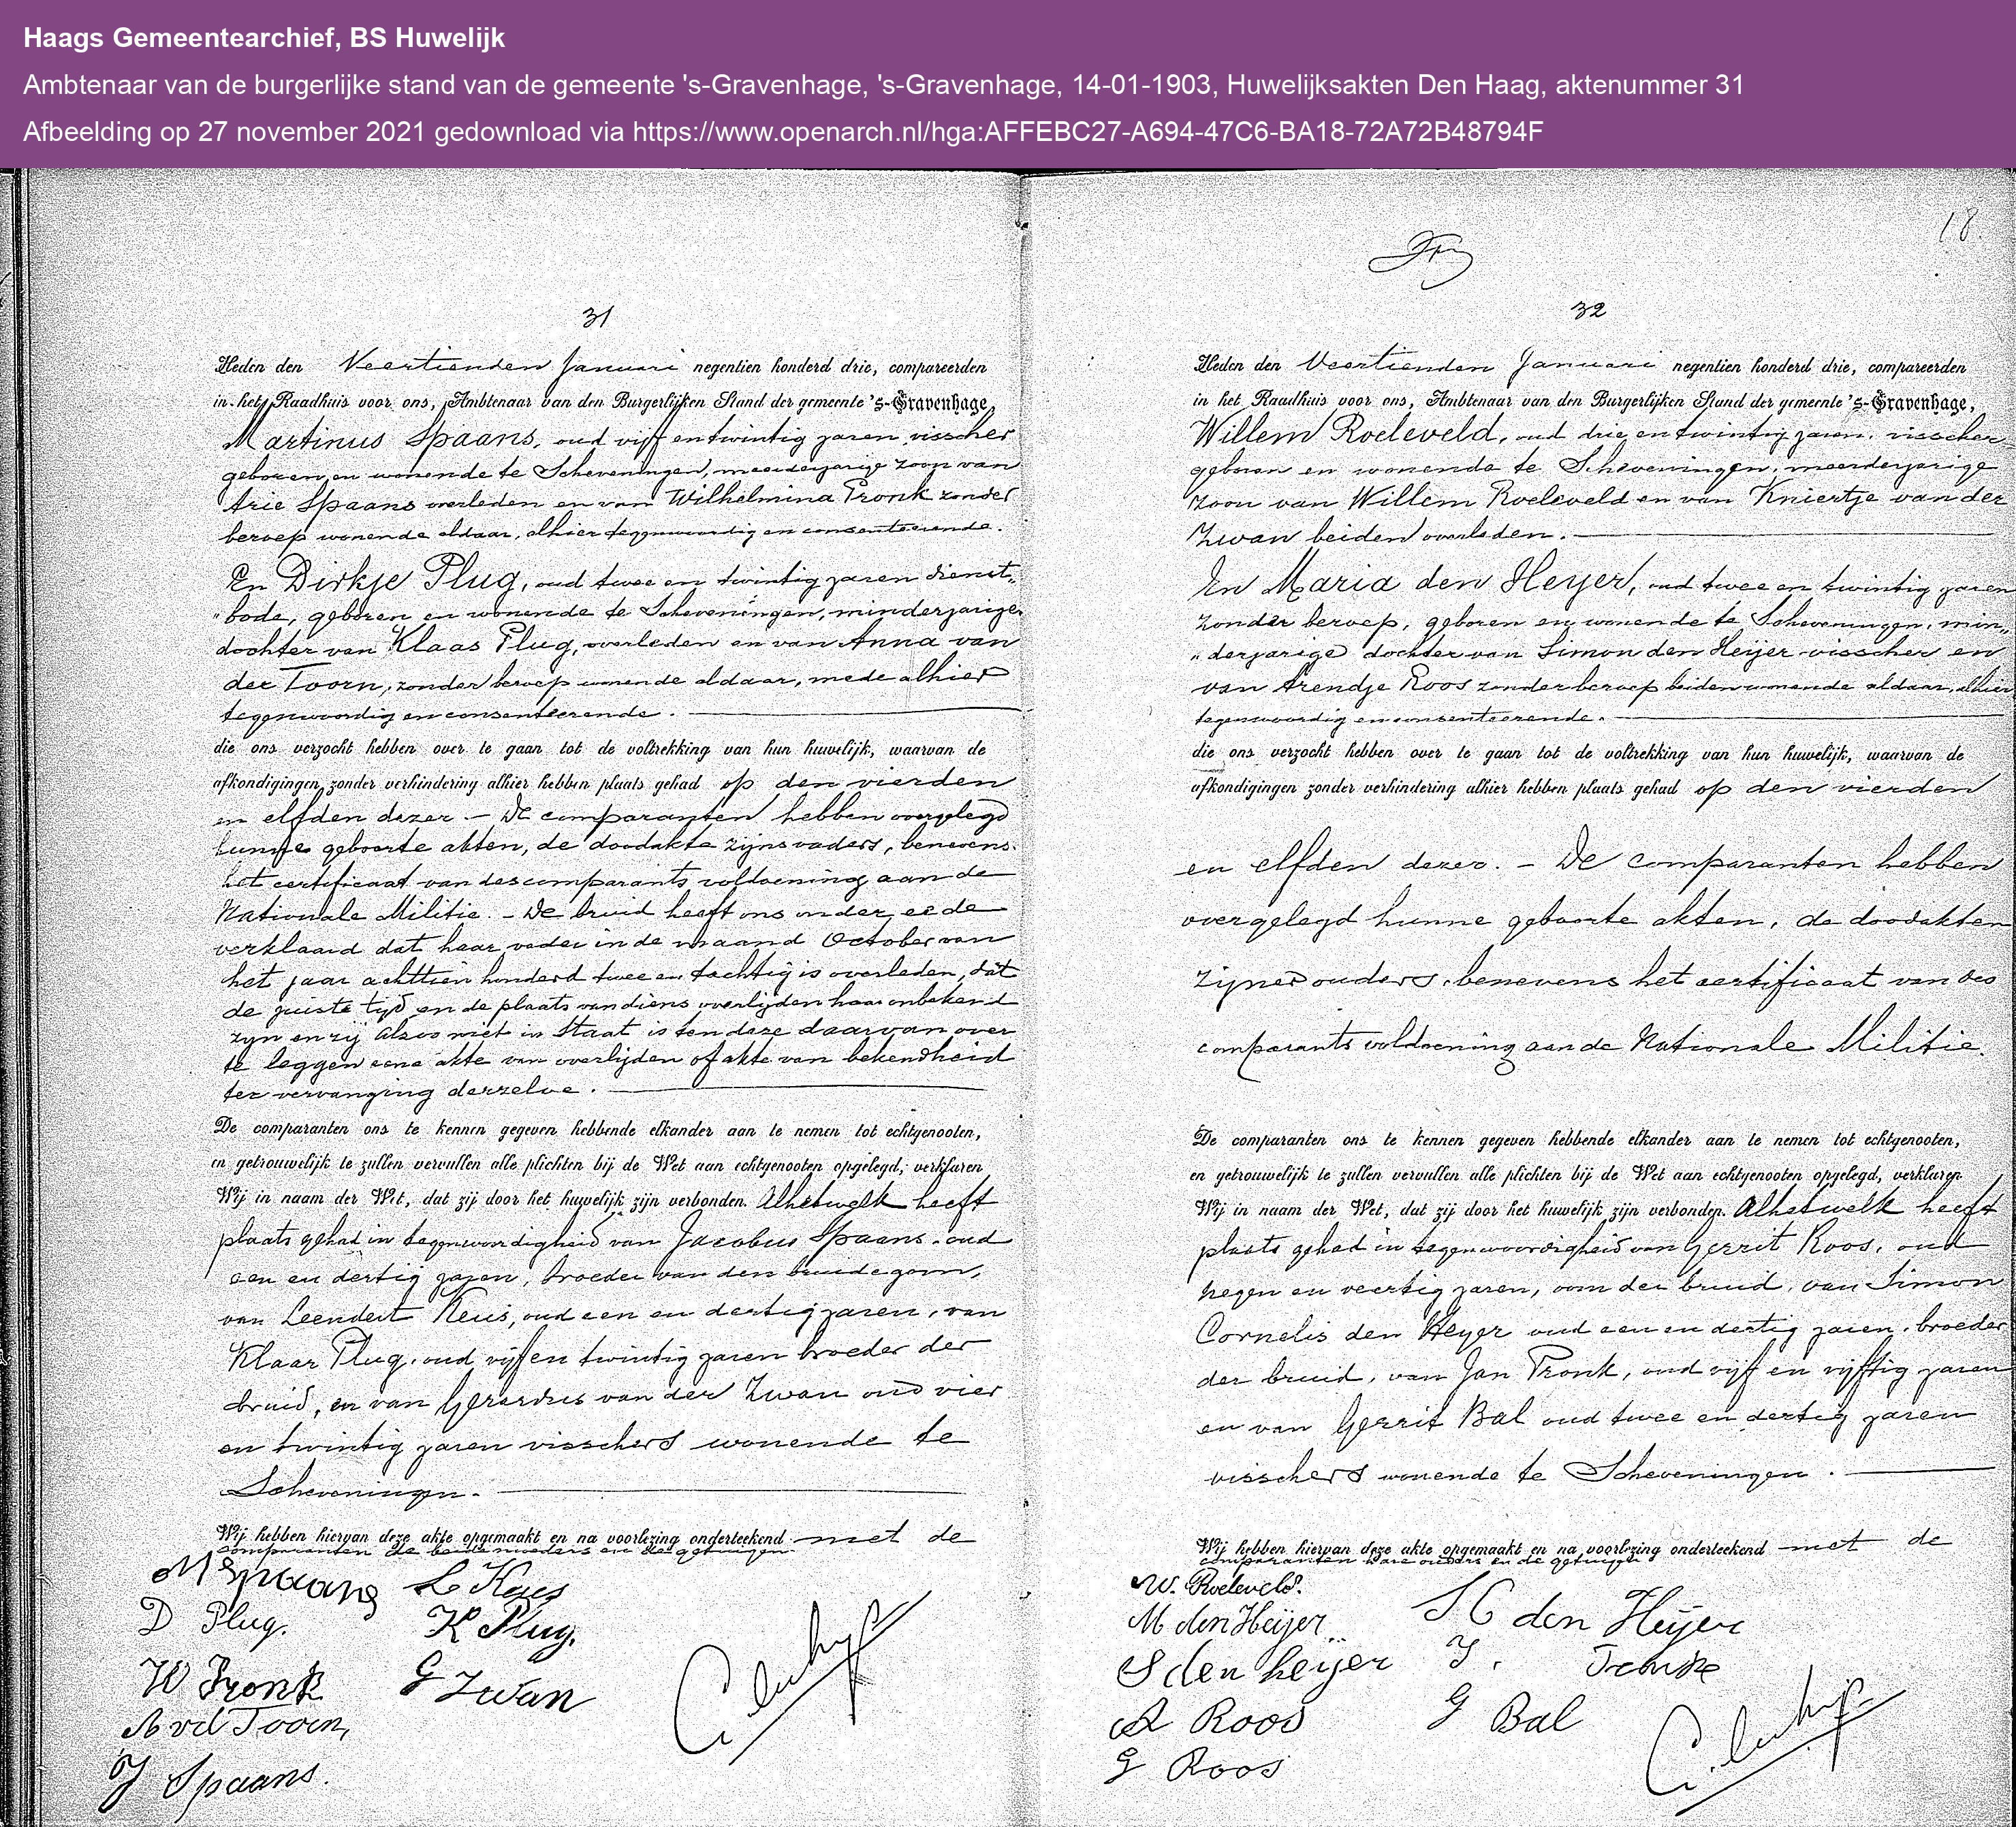 Haags Gemeentearchief, BS Huwelijk
Ambtenaar van de burgerlijke stand van de gemeente 's-Gravenhage, 's-Gravenhage, 14-01-1903, Huwelijksakten Den Haag, aktenummer 31
Afbeelding op 27 november 2021 gedownload via https://www.openarch.nl/hga:AFFEBC27-A694-47C6-BA18-72A72B48794F
31
Heden den Veertienden Januari negentien honderd drie, compareerden
in het Raadhuis voor ons, Ambtenaar van den Burgerlijken Stand der gemeente 's-Gravenhage,
Martinus Spaans, oud vijf en twintig jaren visscher
geboren en wonende te Scheveningen, meerderjarige zoon van
Arie Spaans overleden en van Wilhelmina Pronk zonder
beroep wonende aldaar, alhier tegenwoordig en consenteerende.
En Dirkje Plug, oud twee en twintig jaren dienst„
„bode, geboren en wonende te Scheveningen, minderjarige
dochter van Klaas Plug, overleden en van Anna van
der Toorn, zonder beroep wonende aldaar, mede alhier
tegenwoordig en consenteerende.
die ons verzocht hebben over te gaan tot de voltrekking van hun huwelijk, waarvan de
afkondigingen zonder verhindering alhier hebben plaats gehad op den vierden
en elfden dezer. — De comparanten hebben overgelegd
hunne geboorte akten, de doodakte zijns vaders, benevens
het certificaat van des comparants voldoening aan de
Nationale Militie. — De bruid heeft ons onder eede
verklaard dat haar vader in de maand October van
het jaar achttien honderd twee en tachtig is overleden, dat
de juiste tijd en de plaats van diens overlijden haar onbekend
zijn en zij alzoo niet in staat is ten deze daarvan over
te leggen eene akte van overlijden of akte van bekendheid
ter vervanging derzelve.
De comparanten ons te kennen gegeven hebbende elkander aan te nemen tot echtgenooten,
en getrouwelijk te zullen vervullen alle plichten bij de Wet aan echtgenooten opgelegd, verklaren
Wij in naam der Wet, dat zij door het huwelijk zijn verbonden. Alhetwelk heeft
plaats gehad in tegenwoordigheid van Jacobus Spaans, oud
een en dertig jaren, broeder van den bruidegom,
van Leendert Keus, oud een en dertig jaren, van
Klaas Plug, oud vijf en twintig jaren broeder der
bruid, en van Gerardus van der Zwan oud vier
en twintig jaren visschers wonende te
Scheveningen.
Wij hebben hiervan deze akte opgemaakt en na voorlezing onderteekend met de
comparanten de beide moeders en de getuigen.
M Spaans
L Keus
D Plug.
K Plug.
W Pronk
G Zwan
A vd Toorn,
J Spaans.
18.
32
Heden den Veertienden Januari negentien honderd drie, compareerden
in het Raadhuis voor ons, Ambtenaar van den Burgerlijken Stand der gemeente 's-Gravenhage,
Willem Roeleveld, oud drie en twintig jaren, visscher
geboren en wonende te Scheveningen, meerderjarige
zoon van Willem Roeleveld en van Kniertje van der
Zwan beiden overleden.
En Maria den Heyer, oud twee en twintig jaren
zonder beroep, geboren en wonende te Scheveningen, min„
„derjarige dochter van Simon den Heijer visscher en
van Arendje Roos zonder beroep beiden wonende aldaar, alhier
tegenwoordig en consenteerende.
die ons verzocht hebben over te gaan tot de voltrekking van hun huwelijk, waarvan de
afkondigingen zonder verhindering alhier hebben plaats gehad op den vierden
en elfden dezer. — De comparanten hebben
overgelegd hunne geboorte akten, de doodakten
zijner ouders, benevens het certificaat van des
comparants voldoening aan de Nationale Militie.
De comparanten ons te kennen gegeven hebbende elkander aan te nemen tot echtgenooten,
en getrouwelijk te zullen vervullen alle plichten bij de Wet aan echtgenooten opgelegd, verklaren
Wij in naam der Wet, dat zij door het huwelijk zijn verbonden. Alhetwelk heeft
plaats gehad in tegenwoordigheid van Gerrit Roos, oud
negen en veertig jaren, oom der bruid, van Simon
Cornelis den Heyer oud een en dertig jaren, broeder
der bruid, van Jan Pronk, oud vijf en vijftig jaren
en van Gerrit Bal oud twee en dertig jaren
visschers wonende te Scheveningen.
Wij hebben hiervan deze akte opgemaakt en na voorlezing onderteekend met de
comparanten hare ouders en de getuigen
W. Roeleveld.
M den Heijer
S C den Heijer
S den heijer
A Roos
G Bal
G Roos